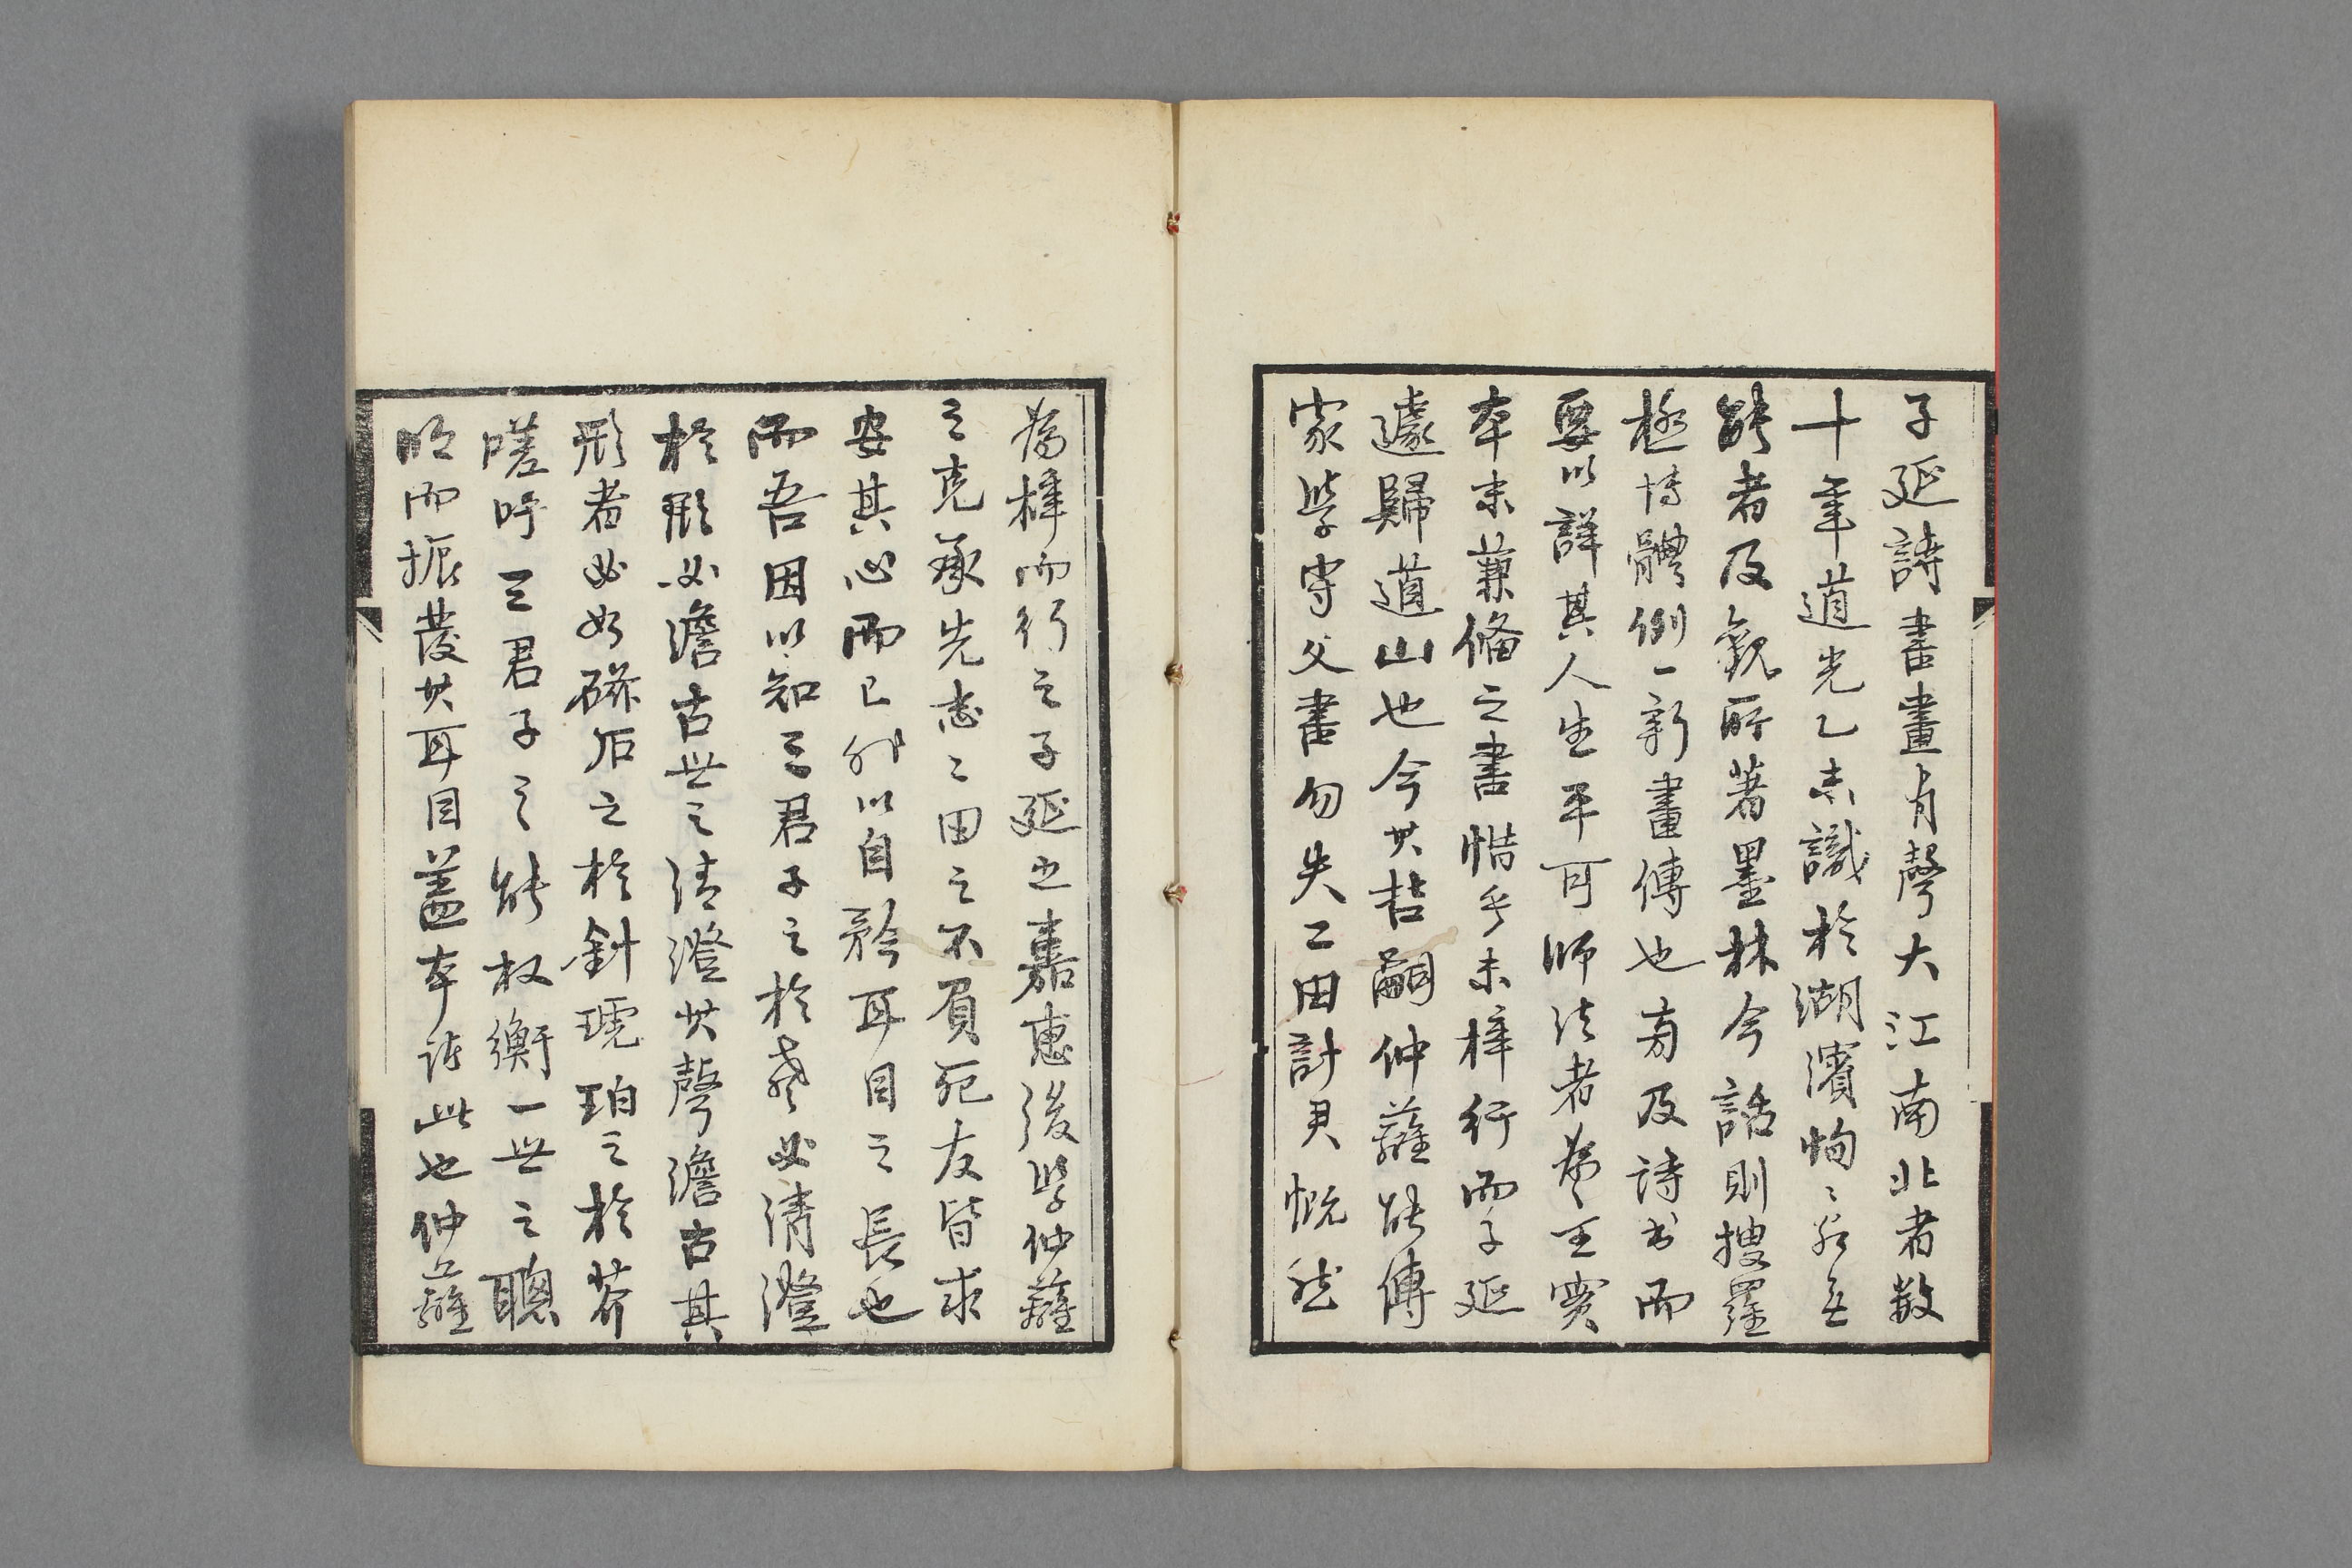 子延詩書畫有聲大江南北者數
十年道光乙未識於湖濱恂〻若無
能者及觀所著墨林今話則搜羅
極博體例一新畫傳也旁及詩書而
要以詳其人生平可師法者為主實
本末兼備之書惜乎未梓行而子延
遽歸道山也今其喆嗣仲蘺能傳
家學守父書勿失二田計君慨然
為梓而行之子延之嘉惠後學仲蘺
之克承先志二田之不負死友皆求
安其心而已非以自矜耳目之長也
而吾因以知三君子之於聲必清澄
於形必澹古世之清澄其聲澹古其
形者必如磁石之於針琥珀之於芥
嗟呼三君子之能权衡一世之聰
明而振發其耳目蓋本諸此也仲蘺